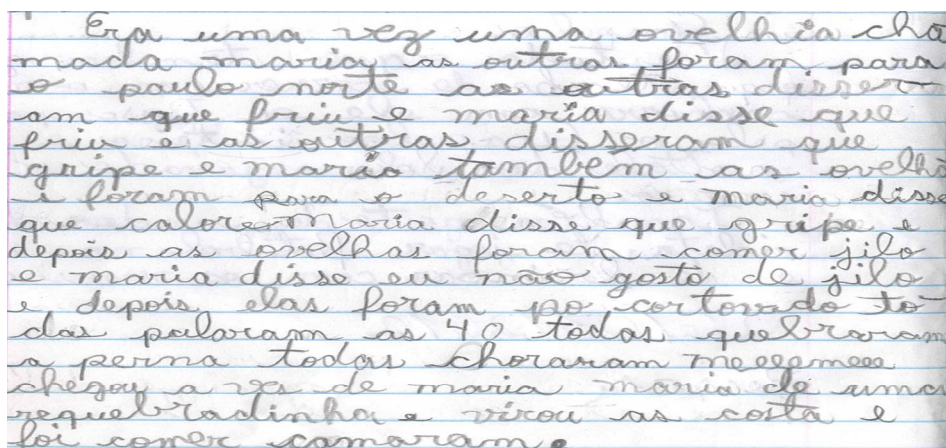 Era uma vez uma ovelhia cha
mada maria as outras foram para
o paulo norte as outras disser
am que friu e maria disse que
friu e as outras disseram que
gripe e maria também as ovelha
i foram para o deserto e maria disse
que calore maria disse que gripe e
depois as ovelhas foram comer jilo
e maria disse eu não gosto de jilo
e depois elas foram po cortoudo to
das pularam as 40 todas quebraram
a perna todas choraram meeemeee
chegou a ves de maria maria de uma
requebradinha e virou as costa e
foi comer camaram.